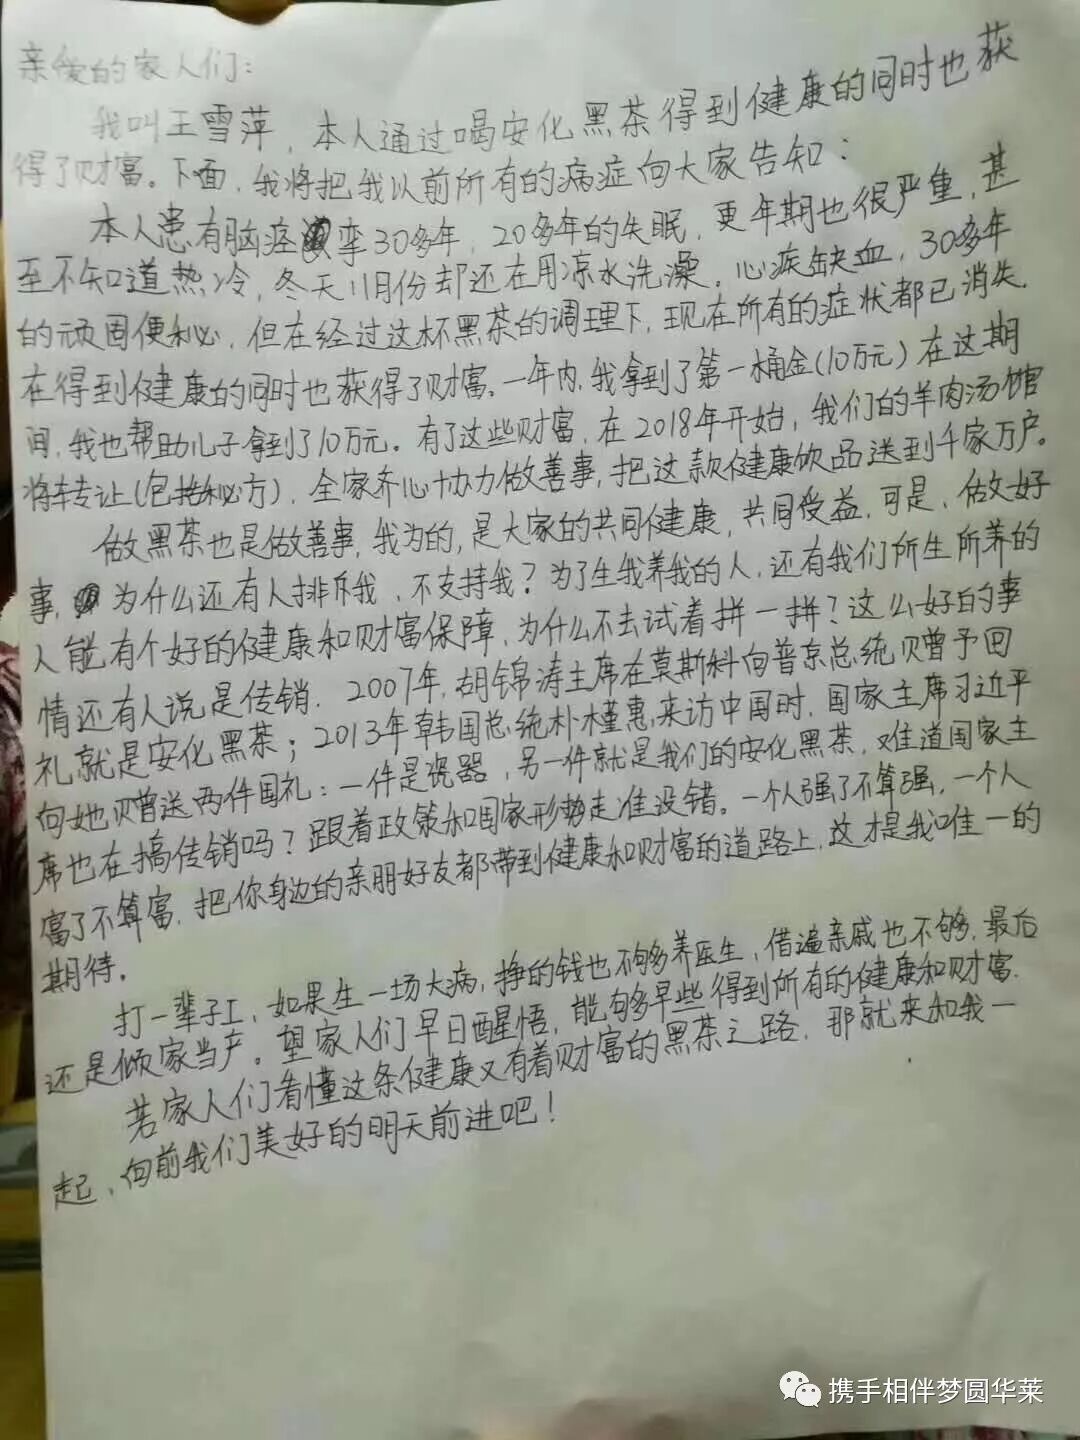 亲爱的家人们:
我叫王雪萍,本人通过喝安化黑茶得到健康的同时也获
得了财富。下面,我将把我以前所有的病症向大家告知:
本人患有脑痉挛30多年,20多年的失眠,更年期也很严重,甚
至不知道热冷,冬天11月份却还在用凉水洗澡。心疾缺血,30多年
的顽固便秘,但在经过这杯黑茶的调理下,现在所有的症状都已消失.
在得到健康的同时也获得了财富。一年内,我拿到了第一桶金(10万元)在这期
间,我也帮助儿子拿到了10万元。有了这些财富,在2018年开始,我们的羊肉汤馆
将转让(包括秘方),全家齐心协力做善事,把这款健康饮品送到千家万户。
做黑茶也是做善事,我为的,是大家的共同健康,共同受益,可是,做好
事,为什么还有人排斥我,不支持我?为了生我养我的人,还有我们所生所养的
人能有个好的健康和财富保障,为什么不去试着拼一拼?这么好的事
情还有人说是传销.2007年,胡锦涛主席在莫斯科向普京总统赠予回
礼就是安化黑茶;2013年韩国总统朴槿惠,来访中国时,国家主席习近平
向她赠送两件国礼:一件是瓷器,另一件就是我们的安化黑茶,难道国家主
席也在搞传销吗?跟着政策和国家形势走准没错。一个人强了不算强,一个人
富了不算富,把你身边的亲朋好友都带到健康和财富的道路上,这才是我唯一的
期待。
打一辈子工,如果生一场大病,挣的钱也不够养医生,借遍亲戚也不够,最后
还是倾家当产。望家人们早日醒悟,能够早些得到所有的健康和财富.
若家人们看懂这条健康又有着财富的黑茶之路,那就来和我一
起,向前我们美好的明天前进吧!
携手相伴梦圆华莱